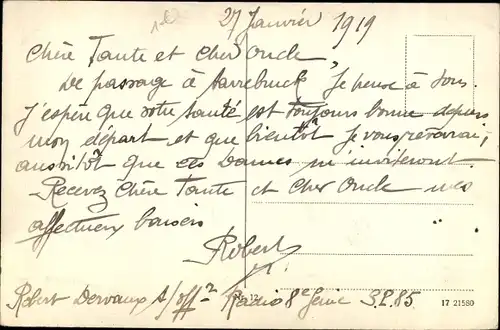 27 Janvier 1919
Chère Tante et Cher Oncle,
De passage à Sarrebruck, Je pense à vous.
J'espère que votre santé est toujours bonne depuis
mon départ et que bientôt je vous reverrai,
aussitôt que ces Dames m'inviteront.
Recevez Chère Tante et Cher Oncle mes
affectueux baisers
Robert
Robert Dervaux S/off Radio 8e Génie S.P. 85
17 21580